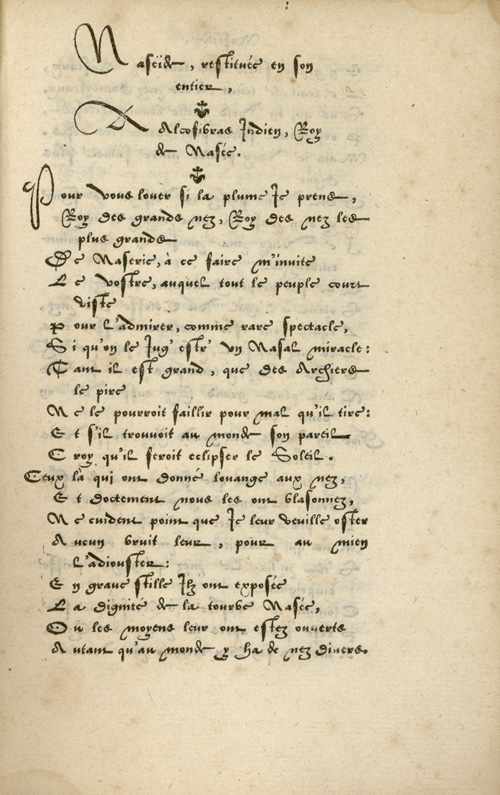 Naseïde, restituée en son
entier,
A Alcofibras Indien, Roy
de Nasée.
Pour vous louer si la plume Ie prens,
Roy des grands nez, Roy des nez les
plus grands
De Naserie, à ce faire m'inuite
Le vostre, auquel tout le peuple court
viste
Pour l'admirer, comme rare spectacle,
Si qu'on le Iug' estr' vn Nasal miracle:
Tant il est grand, que des Archiers
le pire
Ne le pourroit faillir pour mal qu'il tire:
Et s'il trouuoit au monde son pareil
Croy qu'il feroit eclipser le Soleil.
Ceux là qui ont donné louange aux nez,
Et doctement nous les ont blasonnez,
Ne cuident point que Ie leur veuille oster
Aucun bruit leur, pour au mien
l'adiouster:
En graue stille Ilz ont exposée
La dignité de la tourbe Nasée,
Ou les moyens leur ont estez ouuerts
Autant qu'au monde y ha de nez diuers.